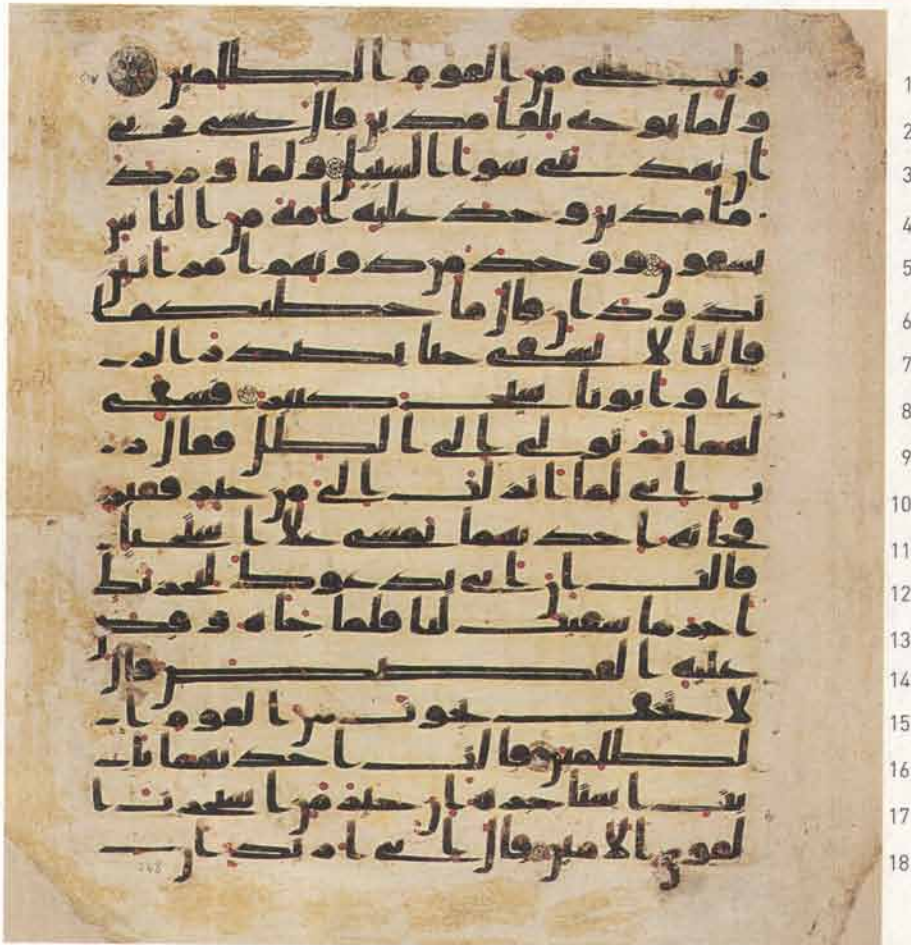 رب نجنى من القوم الظلمين 1
ولما توجه تلقا مدين قال عسى ربى 2
ان يهدينى سوا السبيل ولما ورد 3
ما مدين وجد عليه امة من الناس 4
يسقون ووجد من دونهم امراتين 5
تذودان قال ما خطبكما 6
قالتا لا نسقى حتا يصدر الر 7
عا وابونا شيخ كبير فسقى 8
لهما ثم تولى الى الظل فقال ر 9
ب انى لما انزلت الى من خير فقير 10
فجاته احديهما تمشى علا استحيا 11
قالت ان ابى يدعوك ليجزيك 12
اجر ما سقيت لنا فلما جاه وقص 13
عليه القصص قال 14
لا تخف نجوت من القوم ا 15
لظلمين قالت احديهما يا 16
بت استاجره ان خير من استجرت ا 17
لقوى الامين قال انى اريد ان 18